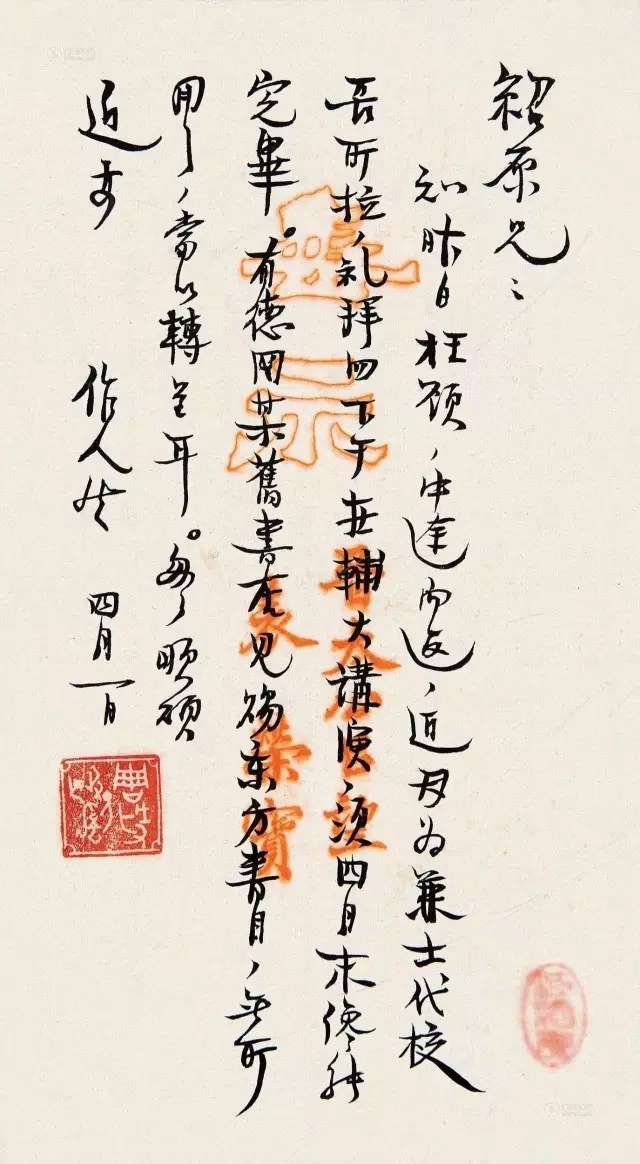 紹原兄：
知昨日枉顧，中途而返，近因為兼士代校
長所拉，礼拜四下午在輔大講演，須四月末纔能
完畢。有德國某舊書店見賜東方書目，無所
用之，當以轉呈耳。匆匆順頌
近安 作人 四月一日
榮寶